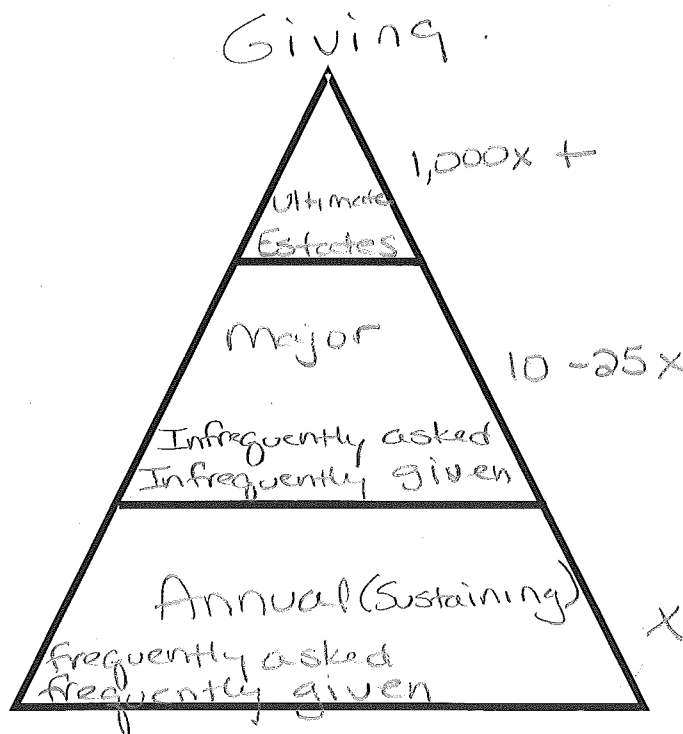 Giving.
1,000x +
Ultimate
Estates
Major
10-25x
Infrequently asked
Infrequently given
Annual (Sustaining)
x
frequently asked
frequently given